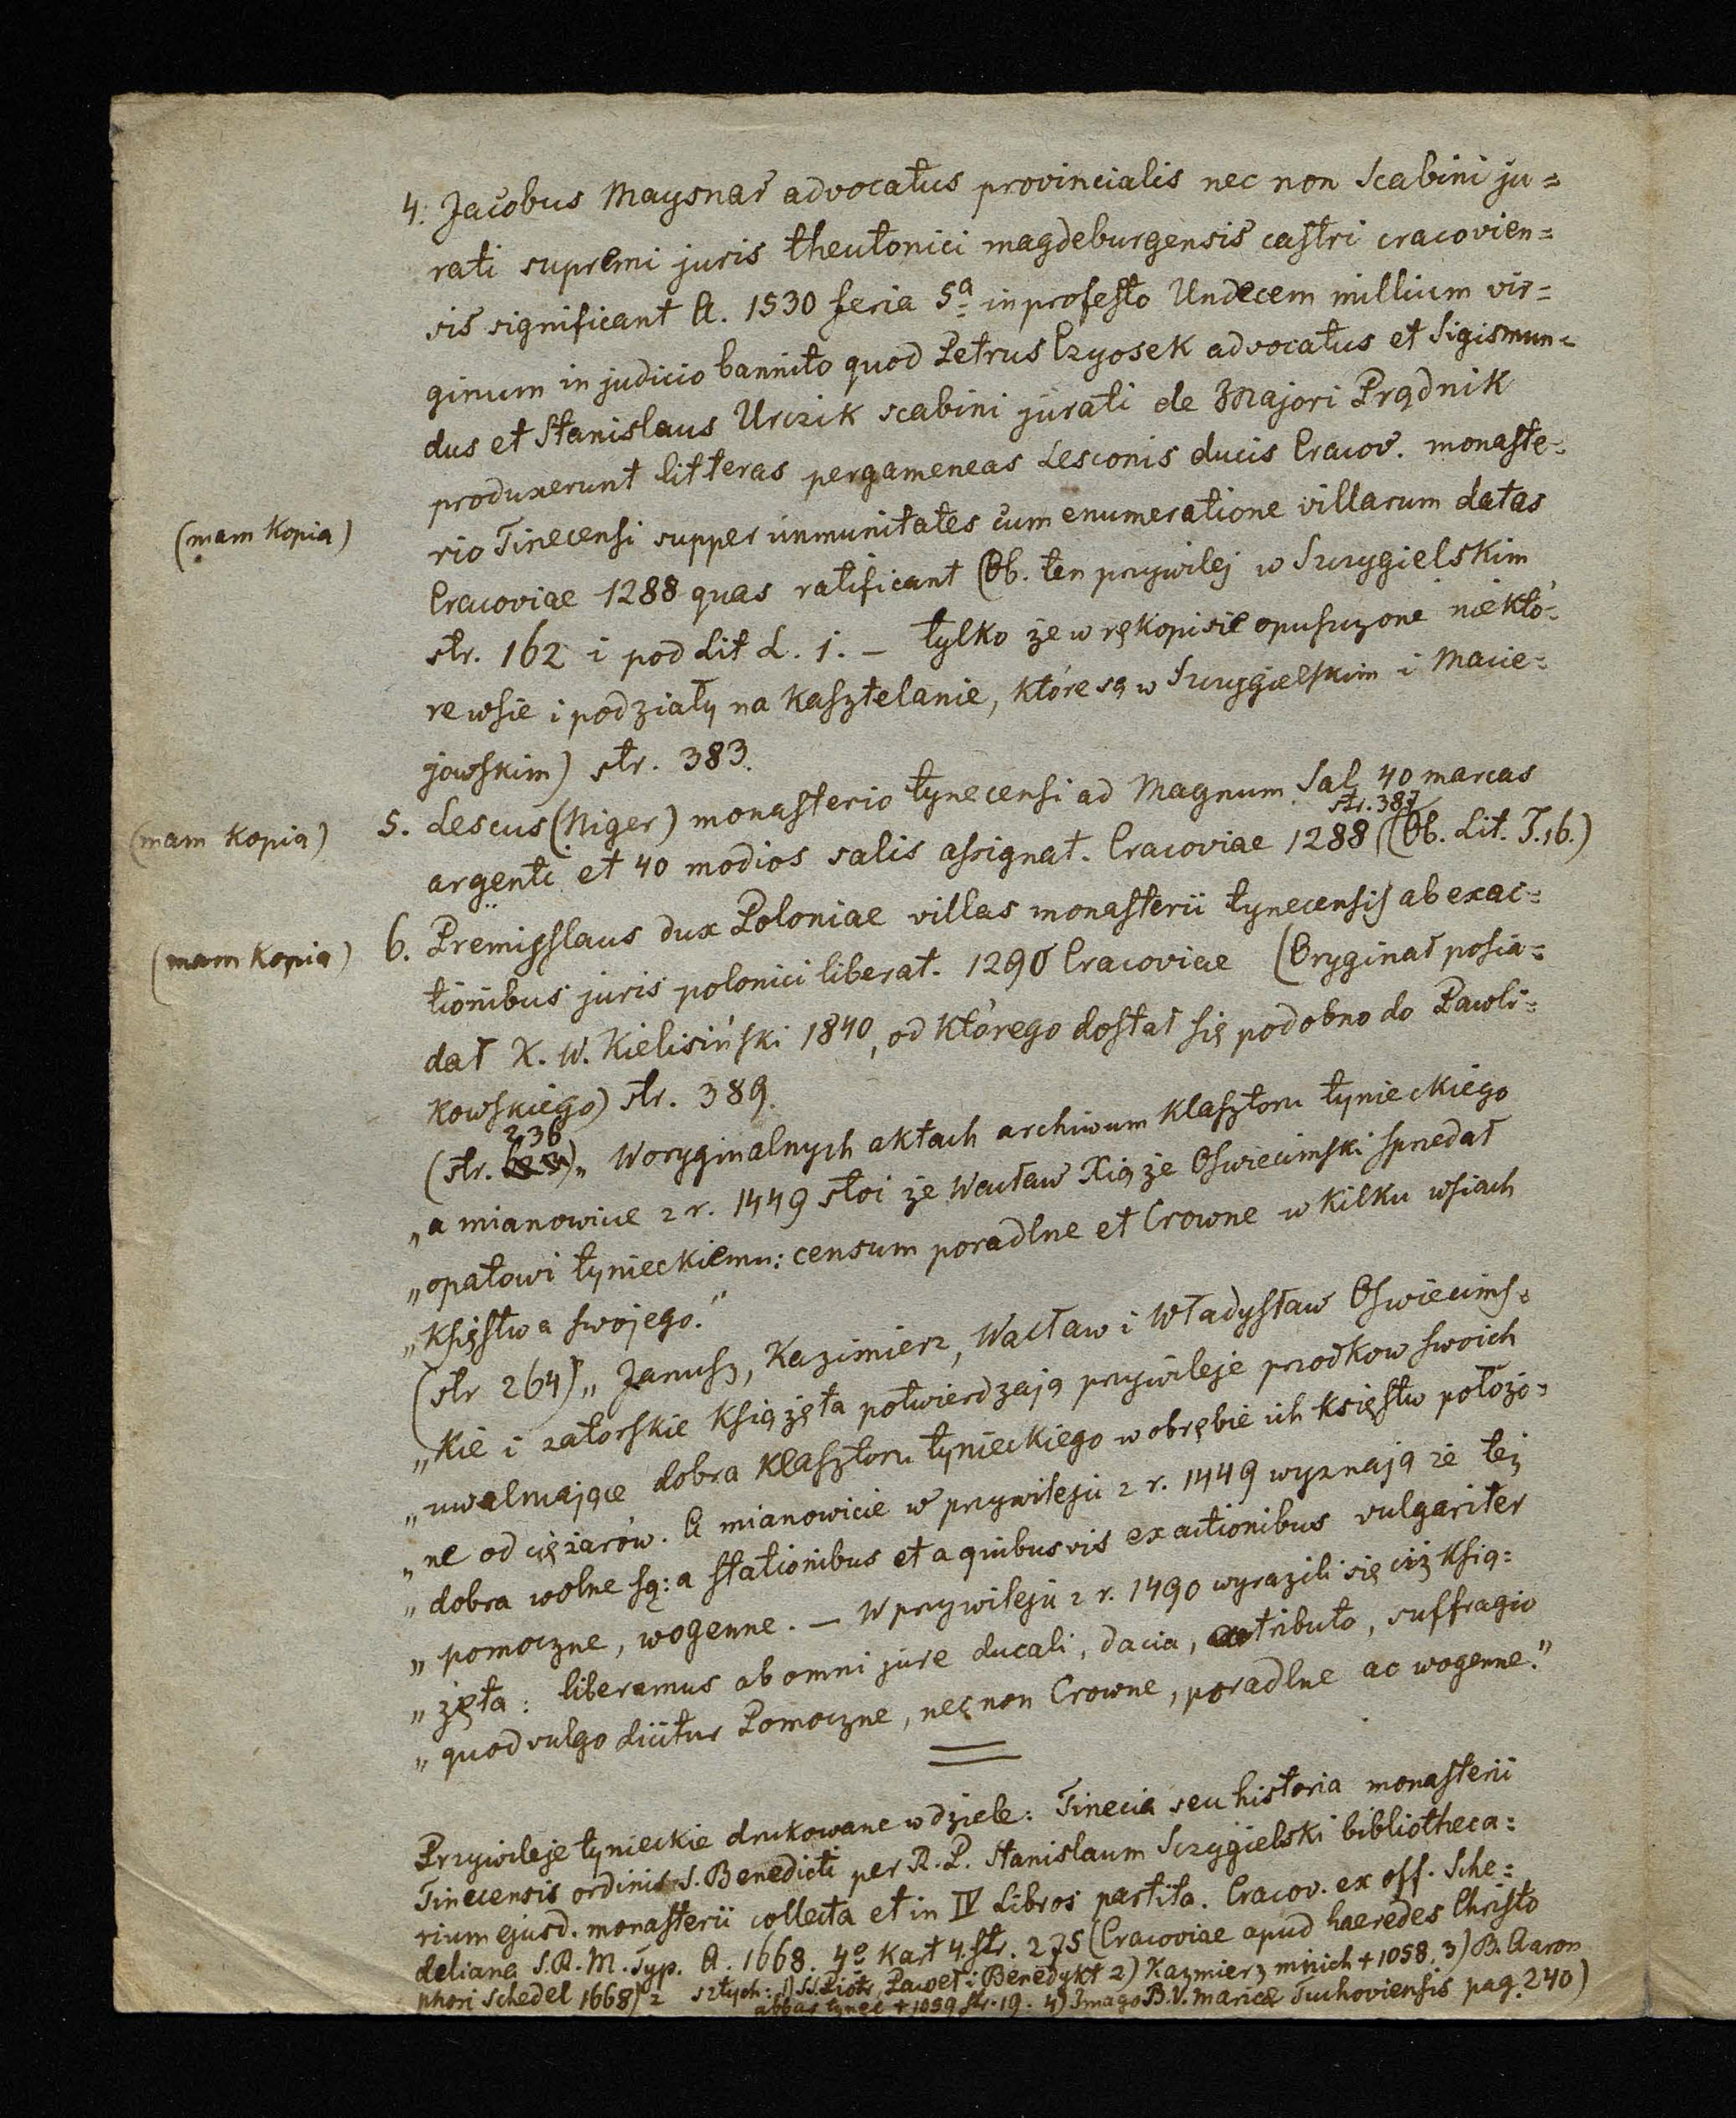 4. Jacobus Maysnar advocatus provincialis nec non Scabini ju=
rati supremi juris theutonici magdeburgensis castri cracovien=
sis significant A. 1530 feria 5a in profesto Undecem millium vir=
ginum in judicio bannito quod Petrus Czyosek advocatus et Sigismun=
dus et Stanislaus Urczik scabini jurati de Majori Prądnik
produxerunt litteras pergameneas Lesconis ducis Cracov. monaste=
(mam kopią) rio Tinecensi supper inmunitates cum enumeratione villarum datas
Cracoviae 1288 quas ratificant (Ob. ten przywilej w Szczygielskim
str. 162 i pod Lit L. 1. – tylko że w rękopisie opuszczone niektó=
re wsie i podziały na kasztelanie, które są w Szczygielskim i Macie=
jowskim) str. 383.
(mam kopią) 5. Lescus (Niger) monasterio tynecensi ad Magnum Sal 40 marcas
argenti et 40 modios salis assignat. Cracoviae 1288 str. 387 (Ob. Lit. T. 16.)
(mam kopią) 6. Premisslaus dux Poloniae villas monasterii tynecensis ab exac=
tionibus juris polonici liberat. 1290 Cracoviae (Oryginał posia=
dał K. W. Kielisiński 1840, od którego dostał się podobno do Pawli=
kowskiego) str. 389.
(str. 236) „W oryginalnych aktach archiwum klasztoru tynieckiego
„a mianowicie z r. 1449 stoi że Wacław Xiąże Oswiecimski sprzedał
„opatowi tynieckiemu: censum poradlne et Crowne w kilku wsiach
„księstwa swojego."
(str 264) „Janusz, Kazimierz, Wacław i Władysław Oswiecims=
„kie i zatorskie książęta potwierdzają przywileje przodkow swoich
„uwalniające dobra klasztoru tynieckiego w obrębie ich księstw położo=
„ne od ciężarów. A mianowicie w przywileju z r. 1449 wyznają że też
„dobra wolne są: a stationibus et a quibusvis exactionibus vulgariter
„pomoczne, wogenne. — W przywileju z r. 1490 wyrazili się ciż ksią=
„żęta: liberamus ab omni jure ducali, dacia, tributo, suffragio
„quod vulgo dicitur Pomoczne, nec non Crowne, poradlne ac wogenne."
Przywileje tynieckie drukowane w dziele: Tinecia seu historia monasterii
Tinecensis ordinis S. Benedicti per R. P. Stanislaum Sczygielski bibliotheca=
rium ejusd. monasterii collecta et in IV Libros partita. Cracov. ex off. Sche=
deliana S. R. M. Typ. A. 1668. 4o kart 4. str. 275 (Cracoviae apud haeredes Christo
phori Schedel 1668) z sztych: 1) SS. Piotr, Paweł i Benedykt 2) Kazmierz mnich + 1058. 3) B. Aaron
abbas tynec + 1059 str. 19. 4) Imago B. V. Mariae Tuchoviensis pag. 240)